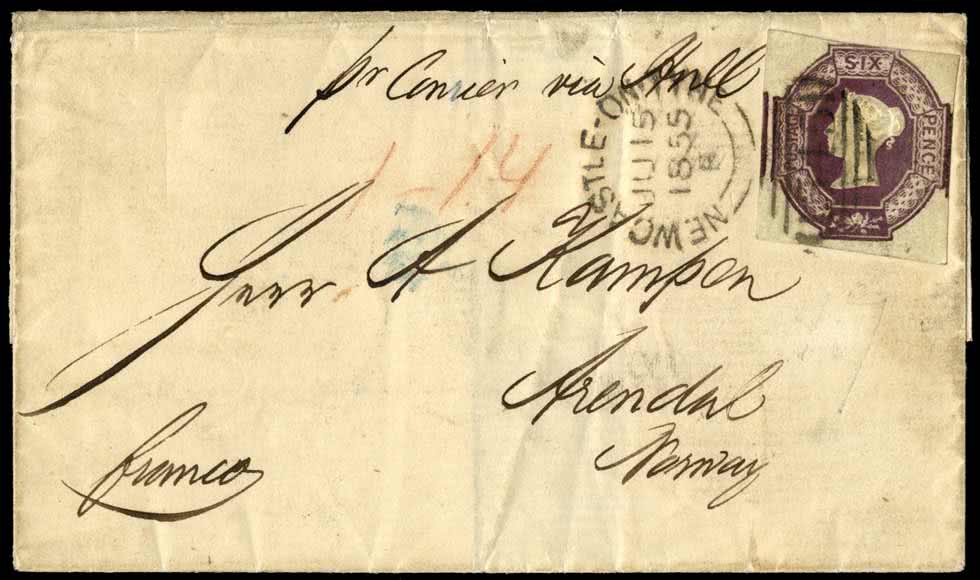 pr Courier via Hull
NEWCASTLE-ON-TYNE
JU 15
1855
SIX
PENCE
POSTAGE
1-14
Herr A Kampen
Arendal
Norway
franco